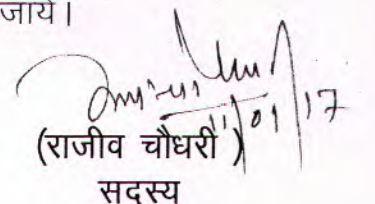 जाये।
11/01/17
(राजीव चौधरी)
सदस्य